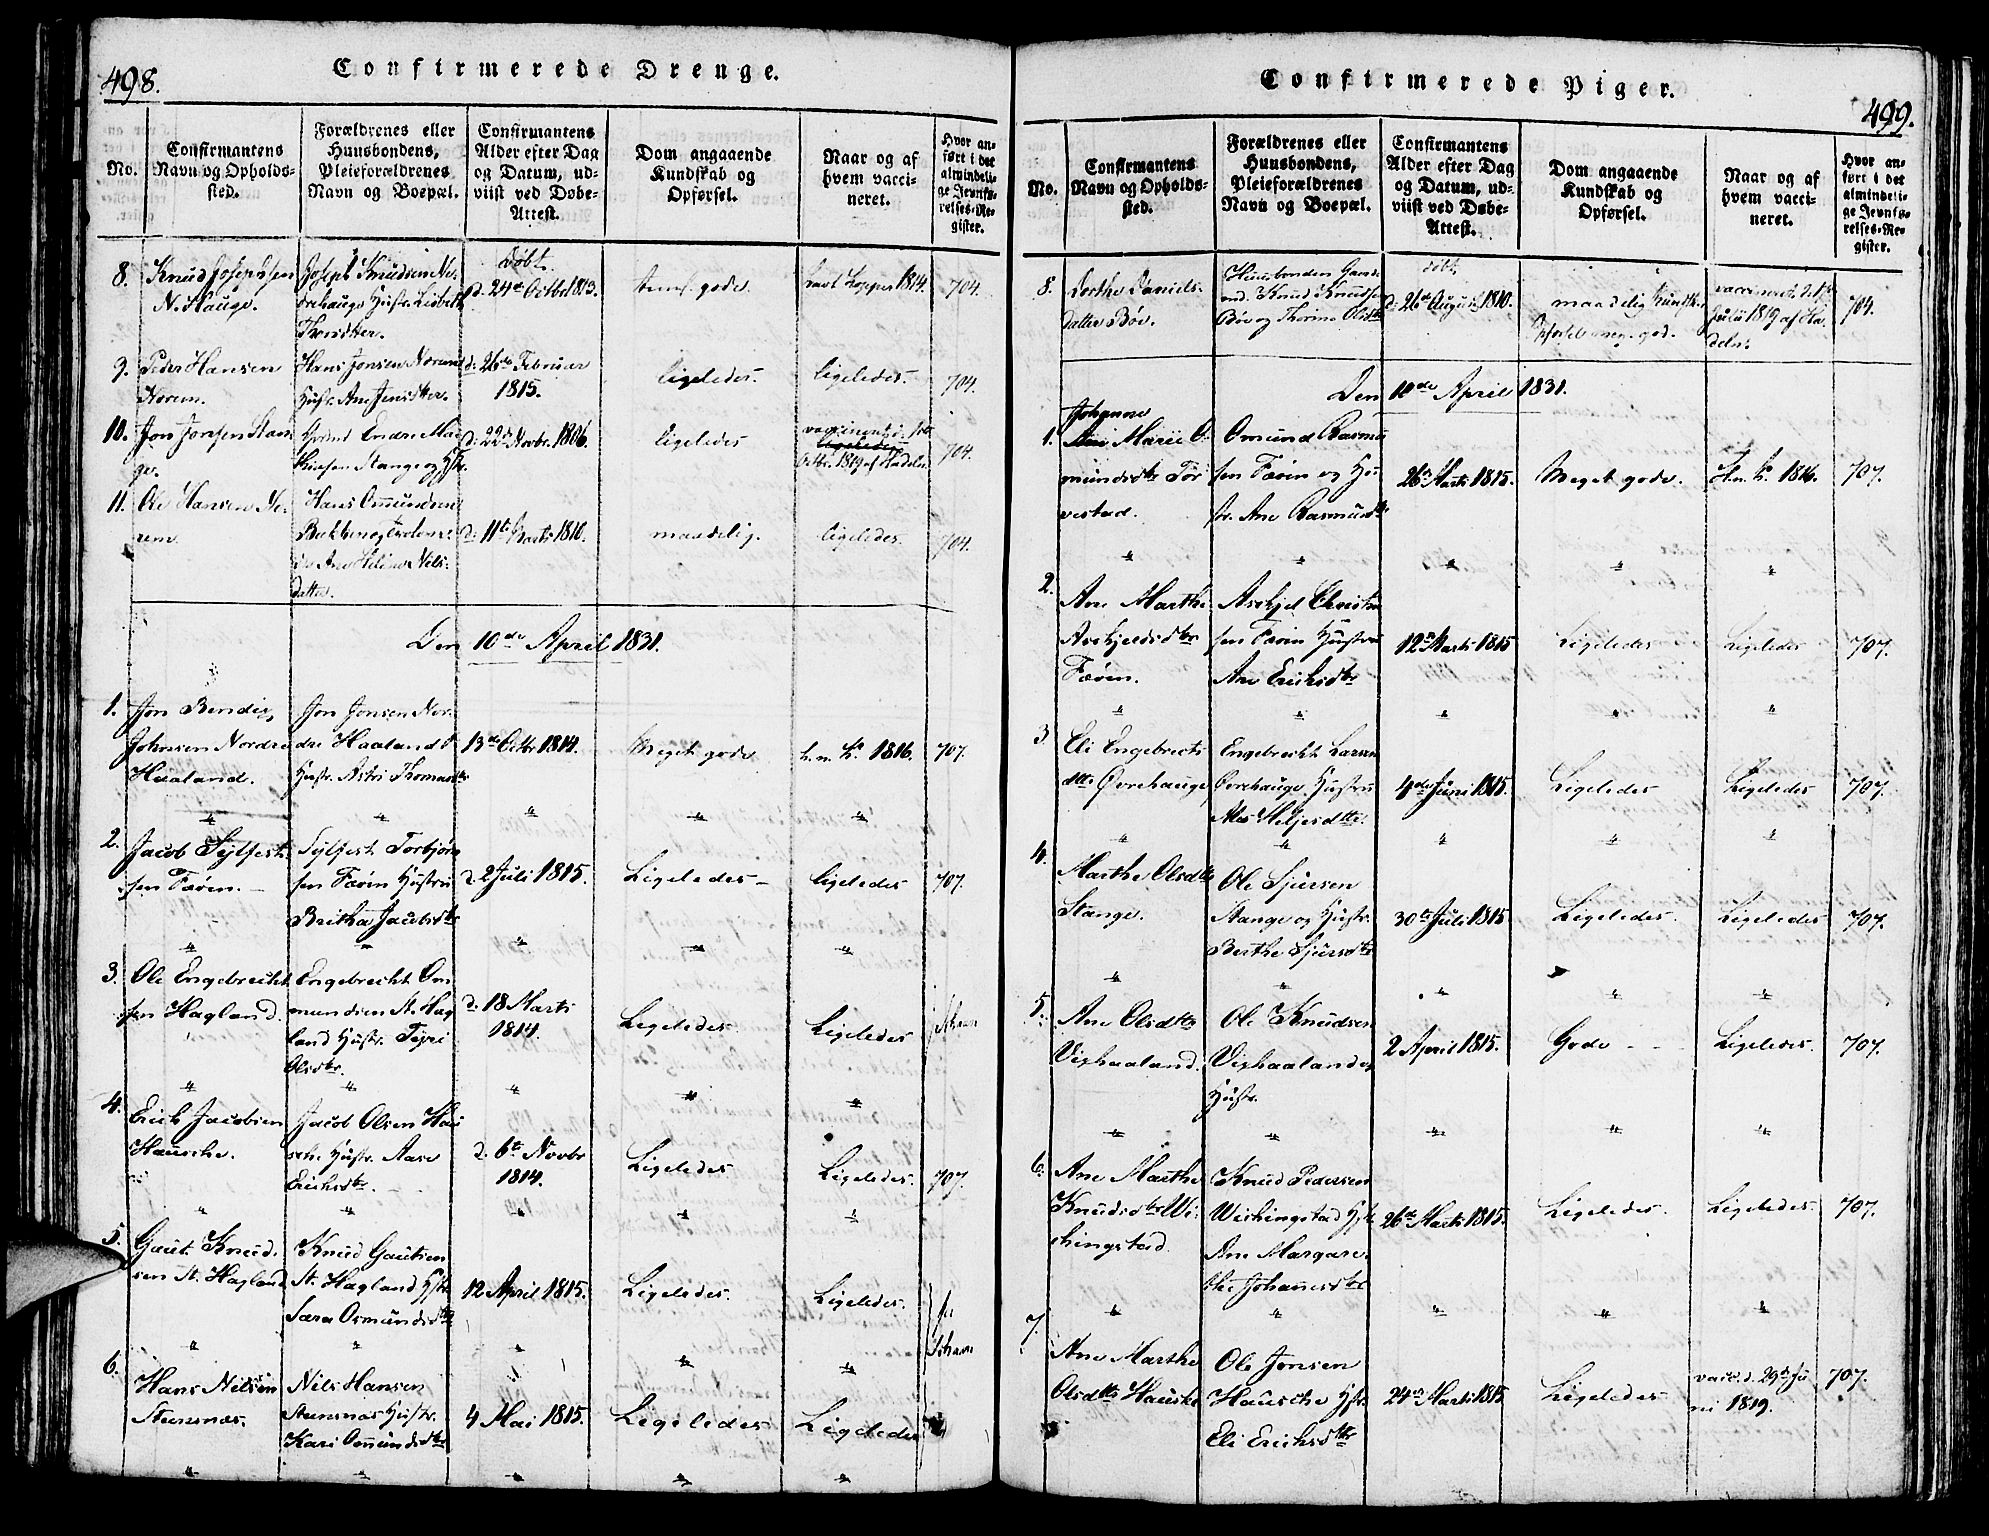 498.
Confirmerede Drenge.
No.
Confirmantens
Navn og Opholds-
sted.
Forældrenes eller
Huusbondens,
Pleieforældrenes
Navn og Boepæl.
Confirmantens
Alder efter Dag
og Datum, ud-
viist ved Døbe-
Attest.
Dom angaaende
Kundskab og
Opførsel.
Naar og af
hvem vacci-
neret.
Hvor an-
ført i det
almindeli-
ge Jevnfø-
relses-Re-
gister.
8.
Knud Josephsen
N. Hauge.
Joseph Knudsen Ne-
drehauge Hustr. Lisbeth
døbt
d: 24de Octbr 1813.
gode
havt Kopper 1814
704.
9.
Peder Hansen
Norem.
Hans Jonsen Norem
Hustr. Ane Jensdtter.
d: 26de Februar
1815.
ligeledes.
ligeledes.
704.
10.
Endre
Stange og Hstr.
d: 22de Novbr. 1806.
ligeledes
ligeledes
Octbr. 1819 af Hadeln
704.
11.
Ole Hansen No-
rem.
Hans Omundsen
Ane Helene Niels-
datter.
d: 11te Marts 1810.
maadelig.
ligeledes.
704.
Den 10de April 1831.
1.
Jon Bendix
Johnsen Nordre
Haaland.
Jon Jonsen Nor-
dre Haaland &
Hustr. Astri Thomasdtr
13de Octbr 1814.
Meget gode
h. n. K. 1816.
707.
" " " " "
2.
Jacob Sylfest-
sen Færøen.
Sylfest Torbjørn
sen Færøen Hustru
Britha Jacobsdtr
d. 2 Juli 1815.
Ligeledes
ligeledes
707.
" " " " "
3.
Ole Engebrecht
sen Hagland.
Engebrecht Om
mundsen St. Hag
land Hustr.
Olsdtr.
d. 18 Marts
1814.
Ligeledes.
Ligeledes
" " " " "
4.
Erich Jacobsen
Hausche.
Jacob Olsen Hau
sche Hustr. Aase
Erichsdtr.
d. 6te Novbr
1814.
Ligeledes
Ligeledes.
707.
" " " " "
5.
Gaut Knud-
sen St. Hagland
Knud Gautsen
St. Hagland Hstr.
Sara Osmundsdtr
12 April 1815.
Ligeledes.
Ligeledes.
" " " " "
6.
Hans Nilsen
Steensnæs.
Nils Hansen
Steensnæs Hustr.
Kari Omundsdtr
4 Mai 1815.
Ligeledes
Ligeledes
" " " " "
499.
Confirmerede Piger.
No.
Confirmantens
Navn og Opholds-
sted.
Forældrenes eller
Huusbondens,
Pleieforældrenes
Navn og Boepæl.
Confirmantens
Alder efter Dag
og Datum, ud-
viist ved Døbe-
Attest.
Dom angaaende
Kundskab og
Opførsel.
Naar og af
hvem vacci-
neret.
Hvor an-
ført i det
almindeli-
ge Jevnfø-
relses-Re-
gister.
8.
Dorthe Daniels-
datter Bøe.
Huusbonden Gaard-
md. Knud Knudsen
Bøe og Thorine Olsdtr
døbt
d: 26de August 1810.
maadelig Kundskab
Opførsel meget god.
vaccineret d. 1ste
Juli 1819 af Ha-
deln.
704.
Den 10de April 1831.
1.
Johanne
Ane Marie O-
mundsdtr Tor
vestad.
Omund Rasmu
sen Færøen og Hu
str. Ane Rasmusdtr
26 Marts 1815.
Meget gode.
H. n. K. 1816.
707.
" " " " "
2.
Ane Marthe
Askjeldsdtr
Færøen.
Askjel Christen
sen Færøen Hustru
Ane Erichsdtr
12 Marts 1815
Ligeledes
Ligeledes
707.
" " " " "
3
Eli Engebrects
dtr Øvrehauge
Engebrecht Larsen
Øvrehauge Hustru
4de Juni 1815.
Ligeledes
Ligeledes
707.
" " " " "
4.
Marthe Olsdtr
Stange.
Ole Sjursen
Stange og Hustr.
Berthe Sjursdtr
30te Juli 1815
Ligeledes.
Ligeledes
707.
" " " " "
5.
Ane Olsdtr
Vishaaland.
Ole Knudsen
Vishaaland og
Hustr.
2 April 1815.
Gode
Ligeledes.
707.
" " " " "
6.
Ane Marthe
Knudsdtr Wi-
chingstad.
Knud Pedersen
Wichingstad Hstr
Ane Margare-
the Johanesdtr
26de Marts 1815.
Ligeledes.
Ligeledes.
707.
" " " " "
7.
Ane Marthe
Olsdtr Hauske
Ole Jonsen
Hausche Hstr.
Eli Erichsdtr
24de Marts 1815
Ligeledes
vacc. d. 29de Ju
ni 1819.
707.